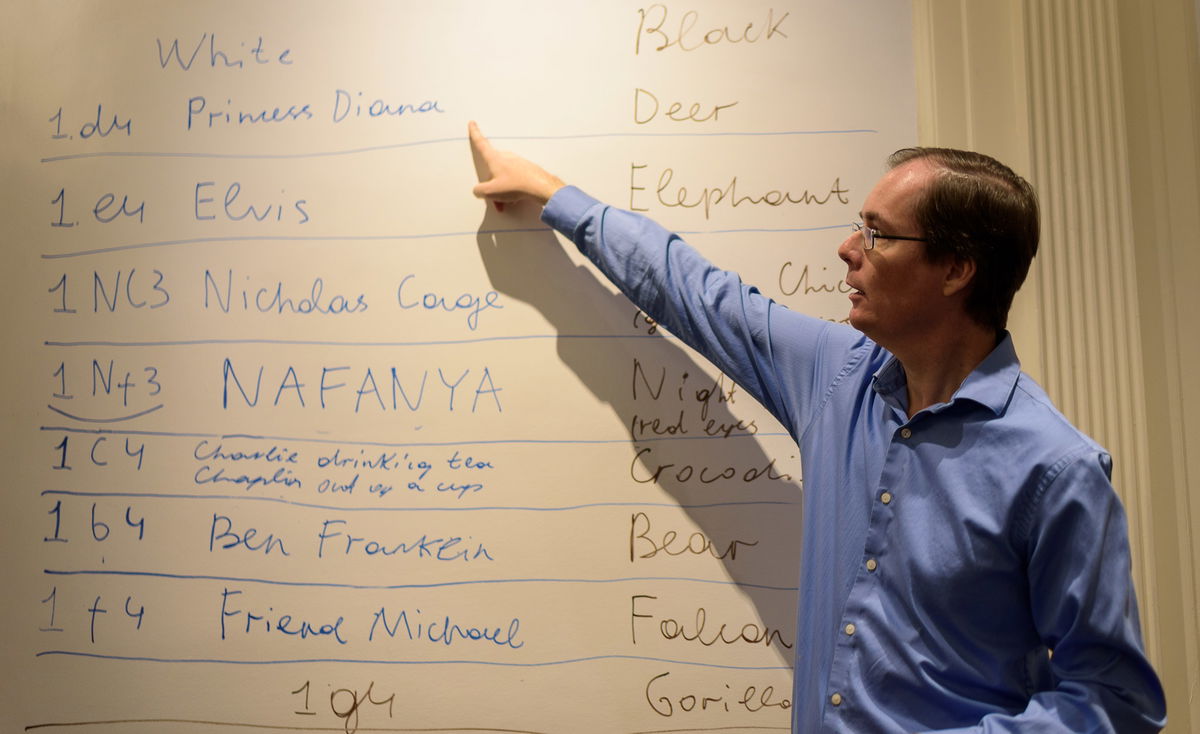 White Black
1.d4 Princess Diana Deer
1.e4 Elvis Elephant
1 NC3 Nicholas Cage
1 Nf3 NAFANYA Night
(red eyes
1 C4 Charlie drinking tea
Chaplin out of a cup
1 b4 Ben Franklin Bear
1 f4 Friend Michael Falcon
1 g4